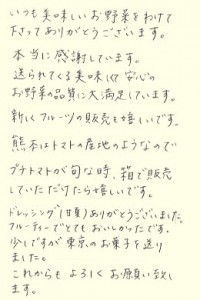 いつも美味しいお野菜をわけて
下さってありがとうございます。
本当に感謝しています。
送られてくる美味しくて安心の
お野菜の品質に大満足しています。
新しくフルーツの販売も嬉しいです。
熊本はトマトの産地のようなので
プチトマトが旬な時、箱で販売
していただけたら嬉しいです。
ドレッシング(甘夏)ありがとうございました。
フルーティーでとてもおいしかったです。
少しですが東京のお菓子を送り
ました。
これからもよろしくお願い致し
ます。